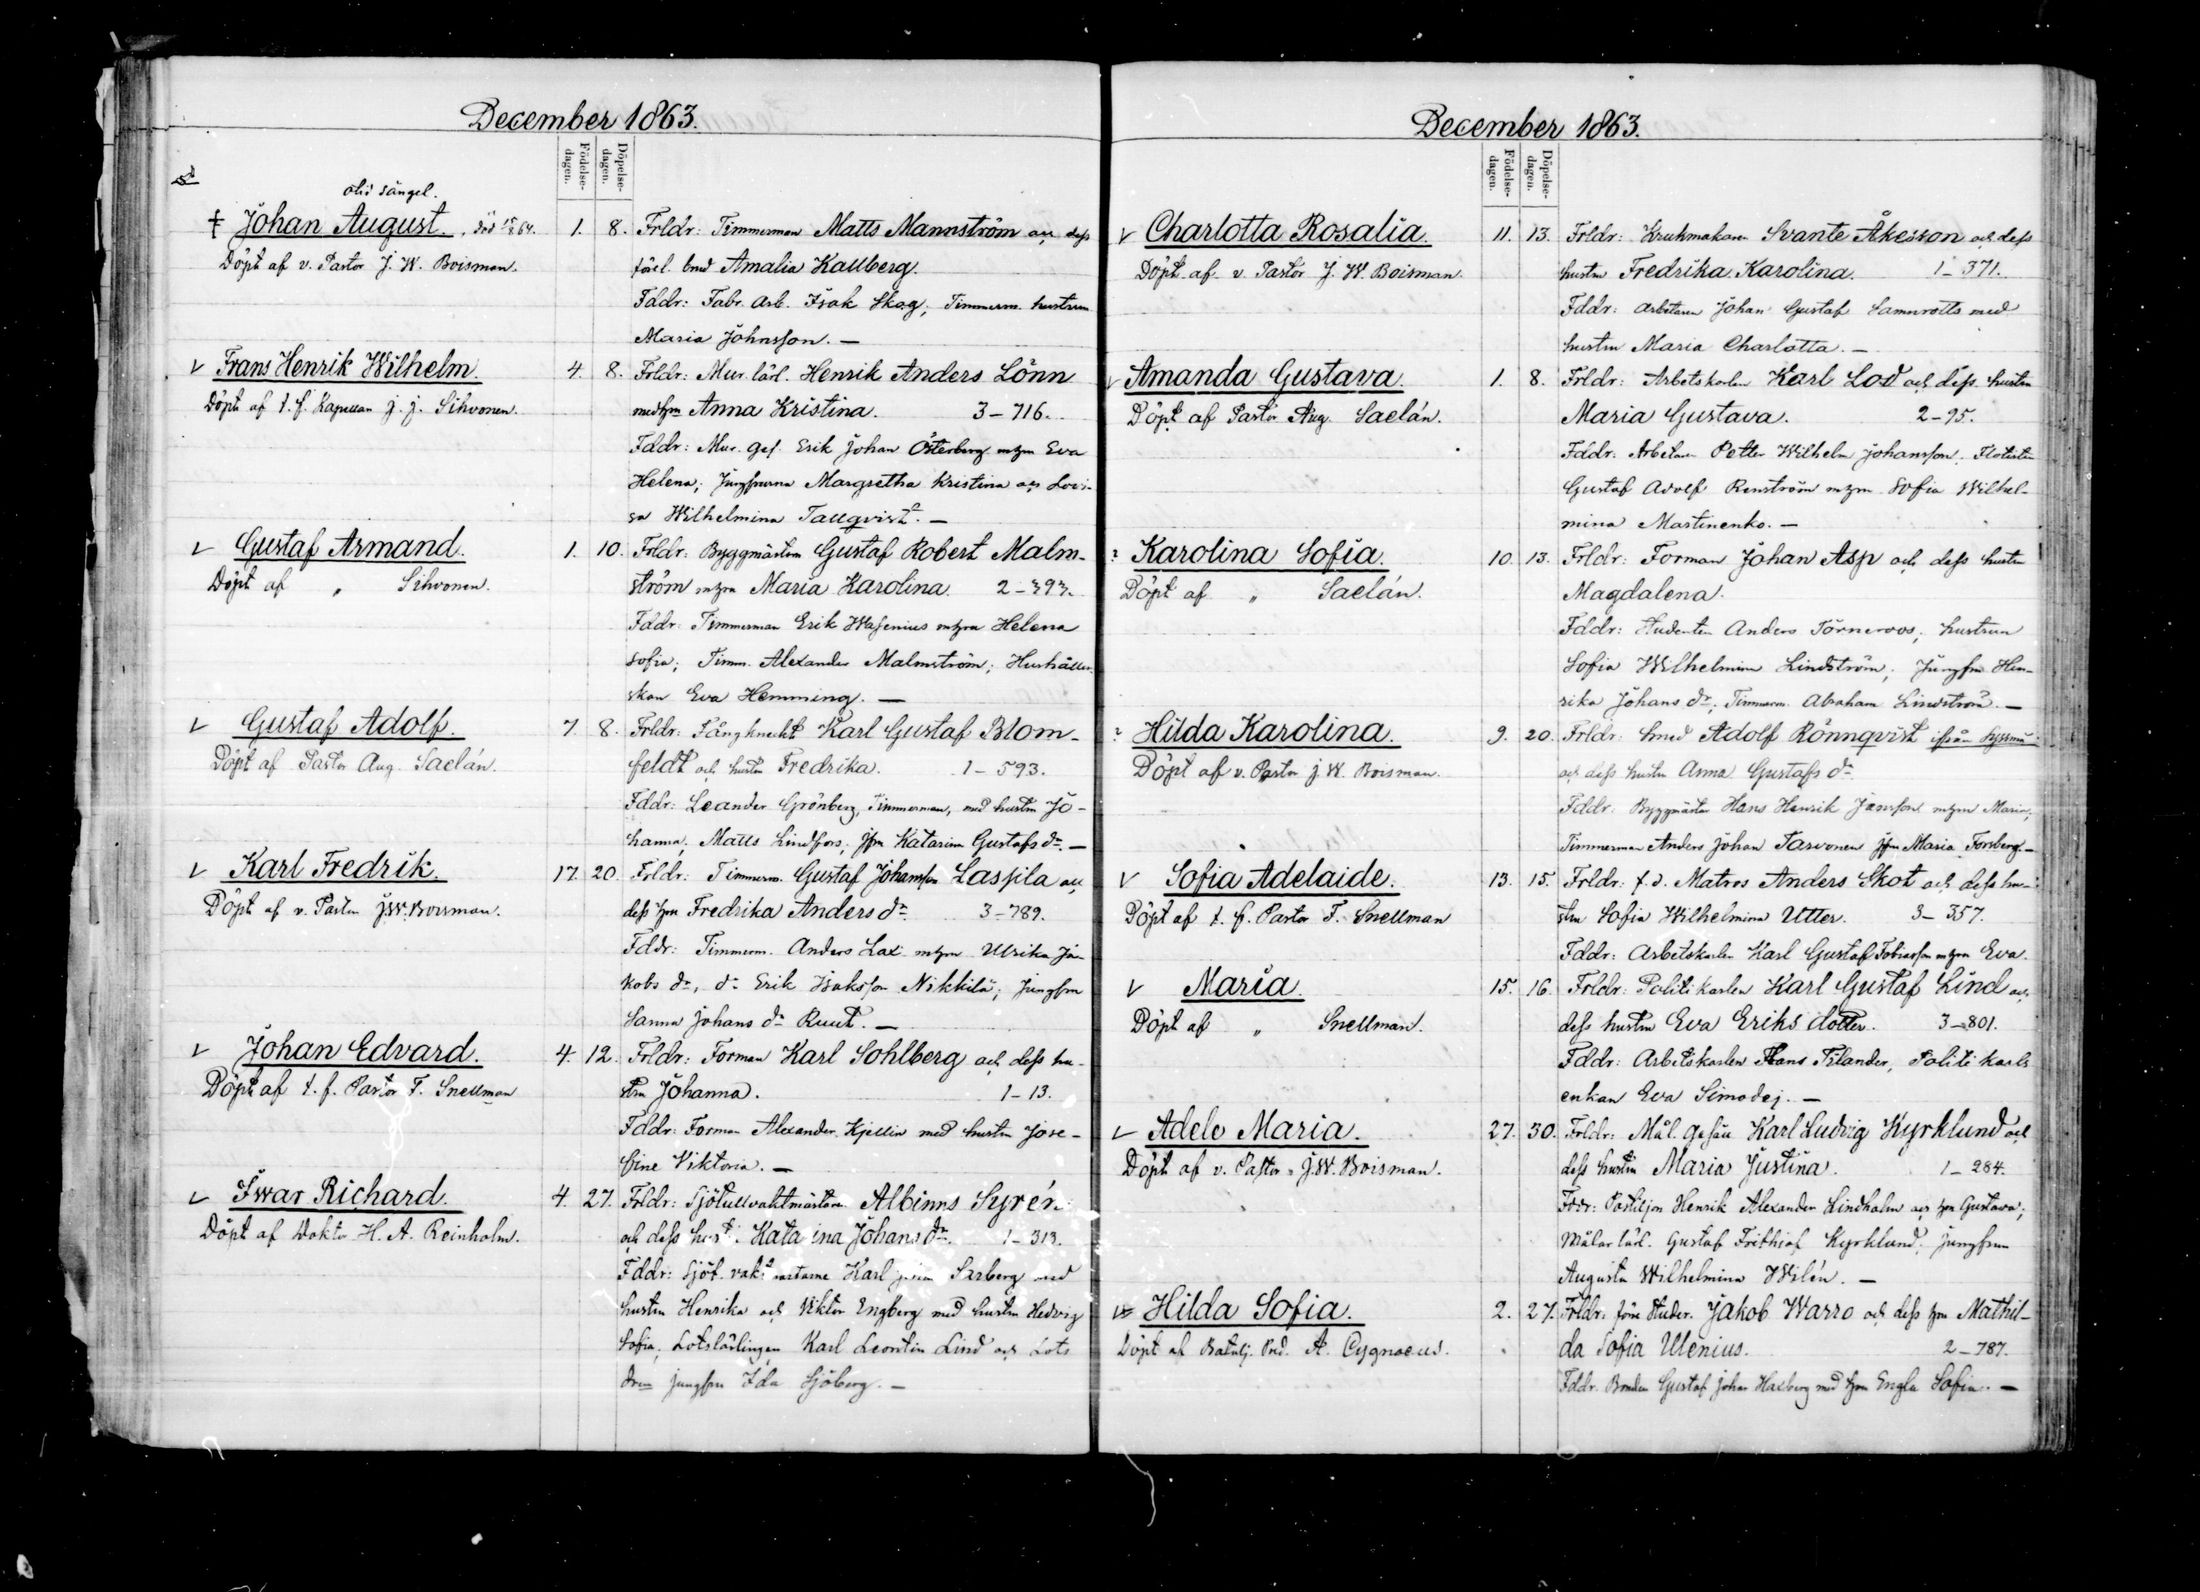 December 1863.
Födelse-dagen. Döpelse-dagen.
oliv sängel.
† Johan August. Död 64. 1. 8. Frldr: Timmerman Matts Mannström och dess
Döpt af v. Pastor J. W. Boisman. Amalia Kallberg.
Fddr: Fabr. Arb. Isak Skog; Timmerm. hustrun
Maria Johnsson. —
v Frans Henrik Wilhelm. 4. 8. Frldr: Mur. lärl. Henrik Anders Lönn
Döpt af t. f. Kapellan J. J. Sihvonen. Anna Kristina. 3–716.
Fddr: Mur. Ges. Erik Johan Österberg mhm Eva
Helena; Jungfrurna Margretha Kristina och Lovi-
sa Wilhelmina Tallqvist. —
v Gustaf Armand. 1. 10. Frldr: Byggmästrn Gustaf Robert Malm-
Döpt af „ Sihvonen. ström mhm Maria Karolina. 2–393.
Fddr: Timmerman Erik Wasenius mhm Helena
Sofia; Timm. Alexander Malmström; Hushåller-
skan Eva Hemming. —
v Gustaf Adolf. 7. 8. Frldr: Fångknekt Karl Gustaf Blom-
Döpt af Pastor Aug. Saelán. feldt och hustrn Fredrika. 1–593.
Fddr: Leander Grönberg, Timmerman, med hustrn Jo-
hanna; Matts Lindfors; Jfrn Katarina Gustafs dr. —
v Karl Fredrik. 17. 20. Frldr: Timmerm. Gustaf Johansson Laspila och
Döpt af v. Pastor J. W. Boisman. dess hm Fredrika Anders dr. 3–789.
Fddr: Timmerm. Anders Lax mhm Ulrika Ja-
kobs dr, do Erik Isaksson Nikkilä; Jungfrn
Sanna Johans dr Ruut. —
v Johan Edvard. 4. 12. Frldr: Forman Karl Sohlberg och dess hu-
Döpt af t. f. Pastor F. Snellman strn Johanna. 1–13.
Fddr: Forman Alexander Kjellin med hustrn Jose-
fine Viktoria. —
v Iwar Richard. 4. 27. Frldr: Sjötullvaktmästaren Albinus Syrén
Döpt af Doktor H. A. Reinholm. och dess Katarina Johans dr. 1–313.
Fddr: Sjöt. vaktmästarne Karl Sarberg med
hustrn Henrika och Viktor Engberg med hustrn Hedvig
Sofia, Lotslärlingen Karl Leontin Lind och Lots
jungfrn Ida Sjöberg. —
December 1863.
Födelse-dagen. Döpelse-dagen.
v Charlotta Rosalia. 11. 13. Frldr: Krukmakaren Svante Åkesson och dess
Döpt af v. Pastor J. W. Boisman. hustrn Fredrika Karolina. 1–371.
Fddr: Arbetaren Johan Gustaf Samnrotts med
hustrn Maria Charlotta. —
v Amanda Gustava. 1. 8. Frldr: Arbetskarlen Karl Lod och dess hustrn
Döpt af Pastor Aug. Saelán. Maria Gustava. 2–95.
Fddr: Arbetaren Petter Wilhelm Johansson; Flotisten
Gustaf Adolf Renström mhm Sofia Wilhel-
mina Martinenko. —
? Karolina Sofia. 10. 13. Frldr: Forman Johan Asp och dess hustrn
Döpt af „ Saelán. Magdalena.
Fddr: Studenten Anders Törneroos; hustrun
Sofia Wilhelmina Lindström; Jungfrn Hen-
rika Johans dr; Timmerm. Abraham Lindström. —
? Hilda Karolina. 9. 20. Frldr: Smed Adolf Rönnqvist ifrån
Döpt af v. Pastor J. W. Boisman. och dess hustrn Anna Gustafs dr
Fddr: Byggmästrn Hans Henrik Jansson mhm Maria;
Timmerman Anders Johan Tarvonen Jfrn Maria Forsberg. —
v Sofia Adelaide. 13. 15. Frldr: f. d. Matros Anders Skot och dess hu-
Döpt af t. f. Pastor F. Snellman strn Sofia Wilhelmina Utter. 3–357.
Fddr: Arbetskarlen Karl Gustaf Tobiasson mhm Eva.
v Maria. 15. 16. Frldr: Politikarlen Karl Gustaf Lind och
Döpt af „ Snellman. dess hustrn Eva Eriks dotter. 3–801.
Fddr: Arbetskarlen Hans Tilander, Politi karls
enkan Eva Simodej. —
v Adele Maria. 27. 30. Frldr: Mål. Gesäll Karl Ludvig Kyrklund och
Döpt af v. Pastor J. W. Boisman. dess hustrn Maria Justina. 1–284.
Fddr: Postiljon Henrik Alexander Lindholm och hm Gustava;
Målar lärl. Gustaf Frithiof Kyrklund; jungfrun
Augusta Wilhelmina Wilén. —
Hilda Sofia. 2. 27. Frldr: Studer. Jakob Warro och dess hm Mathil-
Döpt af Batalj. Pred. A. Cygnaeus. da Sofia Ulenius. 2–787.
Fddr. Bonden Gustaf Johan Haxberg med hm Engla Sofia. —